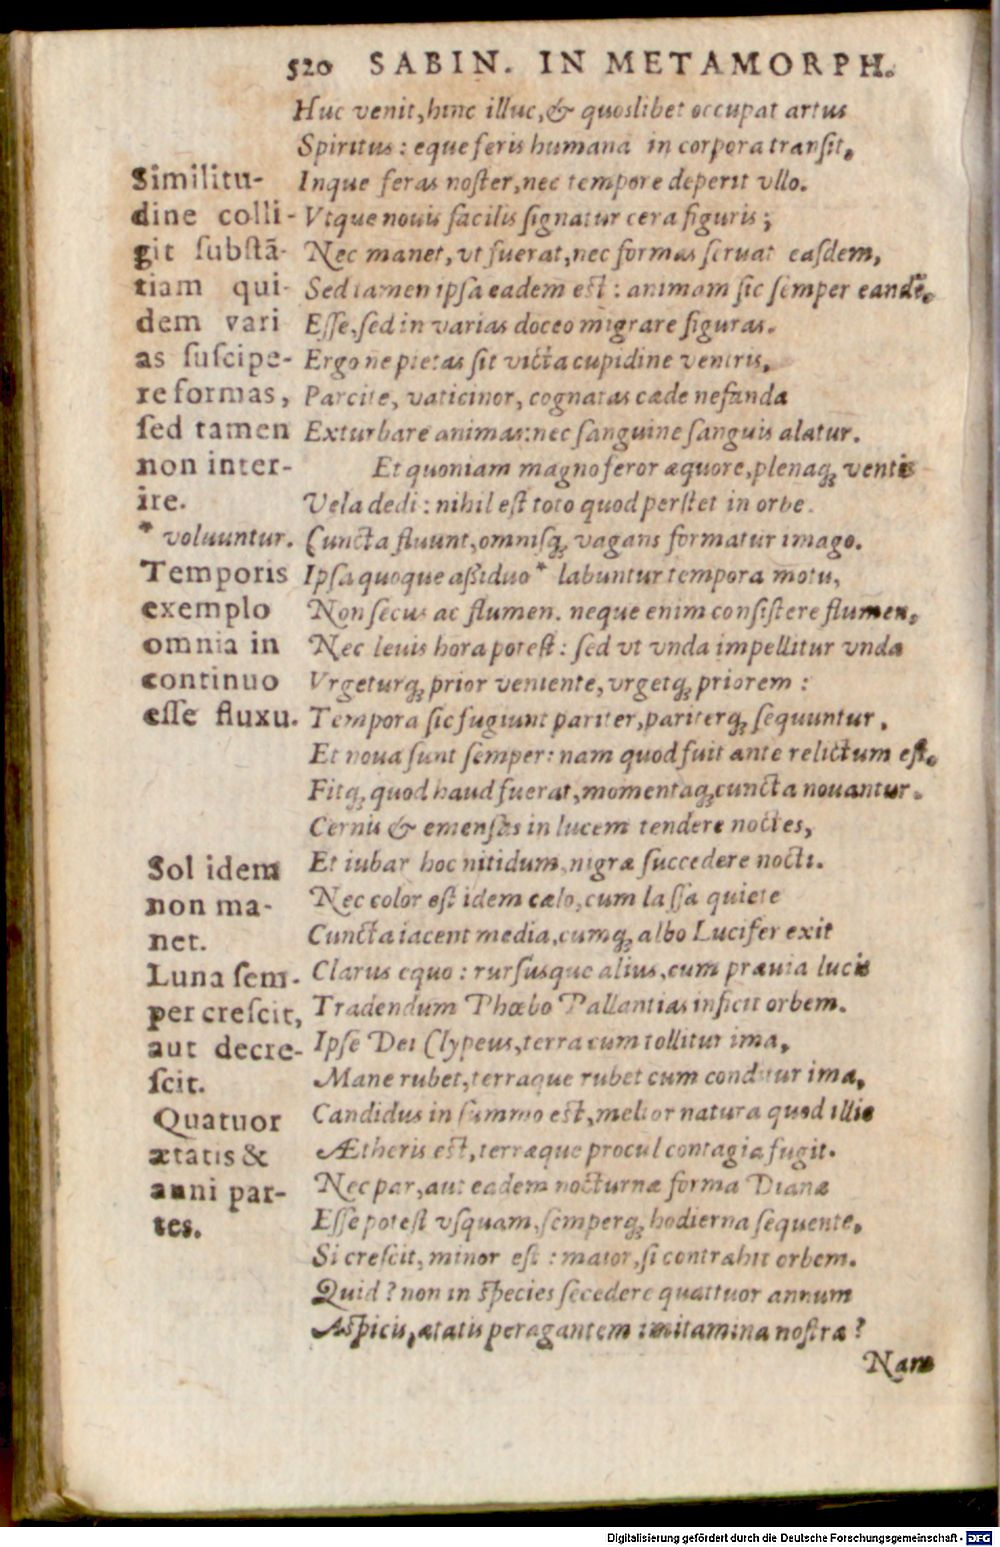 520 SABIN. IN METAMORPH.
Huc venit, hinc illuc, & quoslibet occupat artus
Spiritus: eque feris humana in corpora transit,
Inque feras noster, nec tempore deperit vllo.
Vtque nouis facilis signatur cera figuris;
Nec manet, vt fuerat, nec formas seruat easdem,
Sed tamen ipsa eadem est: animam sic semper eandẽ.
Esse, sed in varias doceo migrare figuras.
Ergo ne pietas sit victa cupidine ventris,
Parcite, vaticinor, cognatas cæde nefanda
Exturbare animas: nec sanguine sanguis alatur.
Et quoniam magno feror æquore, plenaq; ventis
Vela dedi: nihil est toto quod perstet in orbe.
Cuncta fluunt, omnisq; vagans formatur imago.
Ipsa quoque assiduo * labuntur tempora motu,
Non secus ac flumen. neque enim consistere flumen,
Nec leuis hora potest: sed vt vnda impellitur vnda
Vrgeturq; prior veniente, vrgetq; priorem:
Tempora sic fugiunt pariter, pariterq; sequuntur,
Et noua sunt semper: nam quod fuit ante relictum est.
Fitq; quod haud fuerat, momentaq; cuncta nouantur.
Cernis & emensas in lucem tendere noctes,
Et iubar hoc nitidum, nigræ succedere nocti.
Nec color est idem cælo, cum lassa quiete
Cuncta iacent media, cumq; albo Lucifer exit
Clarus equo: rursusque alius, cum præuia lucis
Tradendum Phœbo Pallantias inficit orbem.
Ipse Dei Clypeus, terra cum tollitur ima,
Mane rubet, terraque rubet cum conditur ima,
Candidus in summo est, melior natura quod illis
Ætheris est, terræque procul contagia fugit.
Nec par, aut eadem nocturnæ forma Dianæ
Esse potest vsquam, semperq; hodierna sequente,
Si crescit, minor est: maior, si contrahit orbem.
Quid? non in species secedere quattuor annum
Aspicis, ætatis peragantem imitamina nostræ?
Nam
Similitu-
dine colli-
git substā-
tiam qui-
dem vari
as suscipe-
re formas,
sed tamen
non inter-
ire.
* voluuntur.
Temporis
exemplo
omnia in
continuo
esse fluxu.
Sol idem
non ma-
net.
Luna sem-
per crescit,
aut decre-
scit.
Quatuor
ætatis &
anni par-
tes.
Digitalisierung gefördert durch die Deutsche Forschungsgemeinschaft - DFG